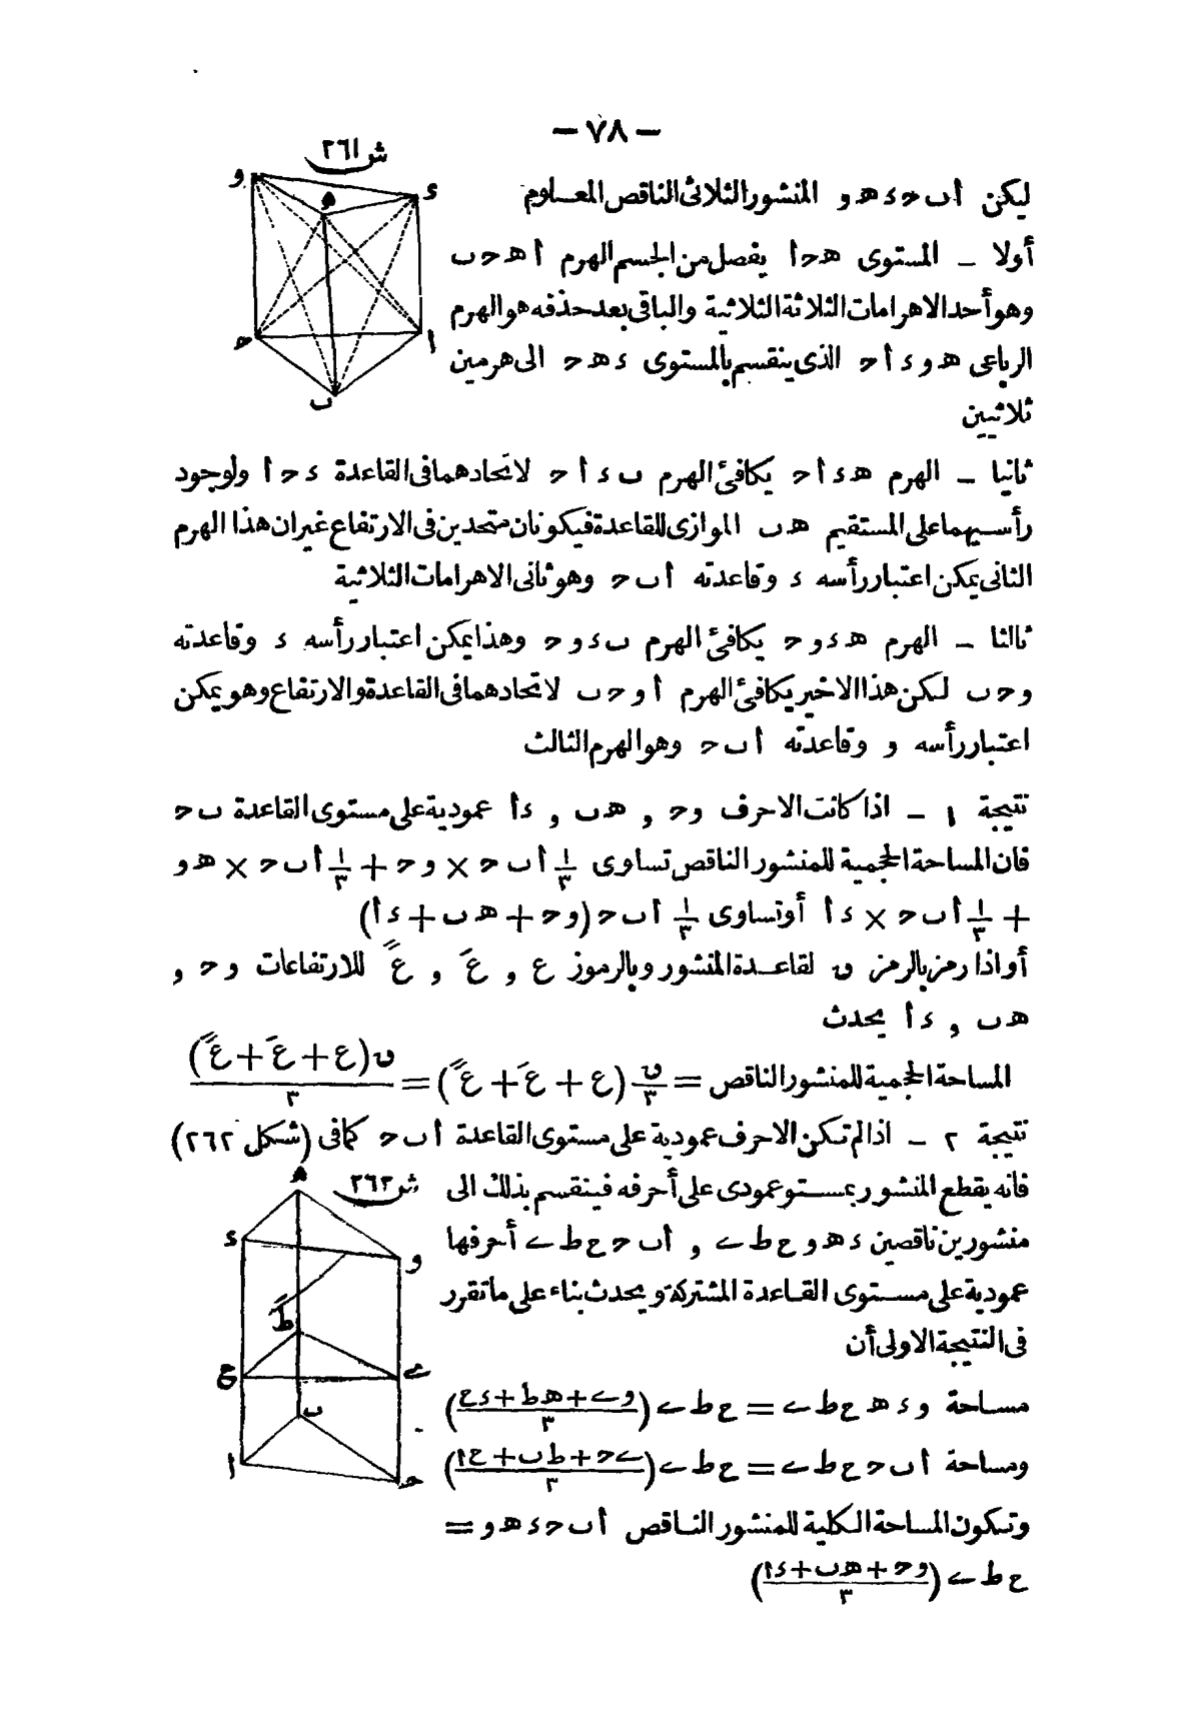 — ٧٨ —
ش ٢٦١
و
ه
ء
ح
ا
ب
ليكن أ ب ح ء ه و المنشور الثلاثى الناقص المعلوم
أولا — المستوى ه ح أ يفصل من الجسم الهرم أ ه ح ب
وهو أحد الاهرامات الثلاثة الثلاثية والباقى بعد حذفه هو الهرم
الرباعى ه و ء أ ح الذى ينقسم بالمستوى ء ه ح الى هرمين
ثلاثيين
ثانيا — الهرم ه ء أ ح يكافئ الهرم ب ء أ ح لاتحادهما فى القاعدة ء ح أ ولوجود
رأسيهما على المستقيم ه ب الموازى للقاعدة فيكونان متحدين فى الارتفاع غير ان هذا الهرم
الثانى يمكن اعتبار رأسه ء وقاعدته أ ب ح وهو ثانى الاهرامات الثلاثية
ثالثا — الهرم ه ء و ح يكافئ الهرم ب ء و ح وهذا يمكن اعتبار رأسه ء وقاعدته
و ح ب لكن هذا الاخير يكافئ الهرم أ و ح ب لاتحادهما فى القاعدة والارتفاع وهو يمكن
اعتبار رأسه و وقاعدته أ ب ح وهو الهرم الثالث
نتيجة ١ — اذا كانت الاحرف و ح , ه ب , ء أ عمودية على مستوى القاعدة ب ح
فان المساحة الحجمية للمنشور الناقص تساوى ١/٣ أ ب ح × و ح + ١/٣ أ ب ح × ه و
+ ١/٣ أ ب ح × ء أ أو تساوى ١/٣ أ ب ح (و ح + ه ب + ء أ)
أو اذا رمز بالرمز ق لقاعدة المنشور وبالرموز ع , عَ , عً للارتفاعات و ح ,
ه ب , ء أ يحدث
المساحة الحجمية للمنشور الناقص = ق/٣ (ع + عَ + عً) = ق(ع + عَ + عً)/٣
نتيجة ٢ — اذا لم تكن الاحرف عمودية على مستوى القاعدة أ ب ح كما فى (شكل ٢٦٢)
ش ٢٦٢
ه
ء
و
ط
ع
ى
ب
ا
ح
فانه يقطع المنشور بمستو عمودى على أحرفه فينقسم بذلك الى
منشورين ناقصين ء ه و ع ط ى , أ ب ح ع ط ى أحرفها
عمودية على مستوى القاعدة المشتركة ويحدث بناء على ما تقرر
فى النتيجة الاولى أن
مساحة و ء ه ع ط ى = ع ط ى (و ى + ه ط + ء ع/٣)
ومساحة أ ب ح ع ط ى = ع ط ى (ى ح + ط ب + ع ا/٣)
وتكون المساحة الكلية للمنشور الناقص أ ب ح ء ه و =
ع ط ى (و ح + ه ب + ء ا/٣)